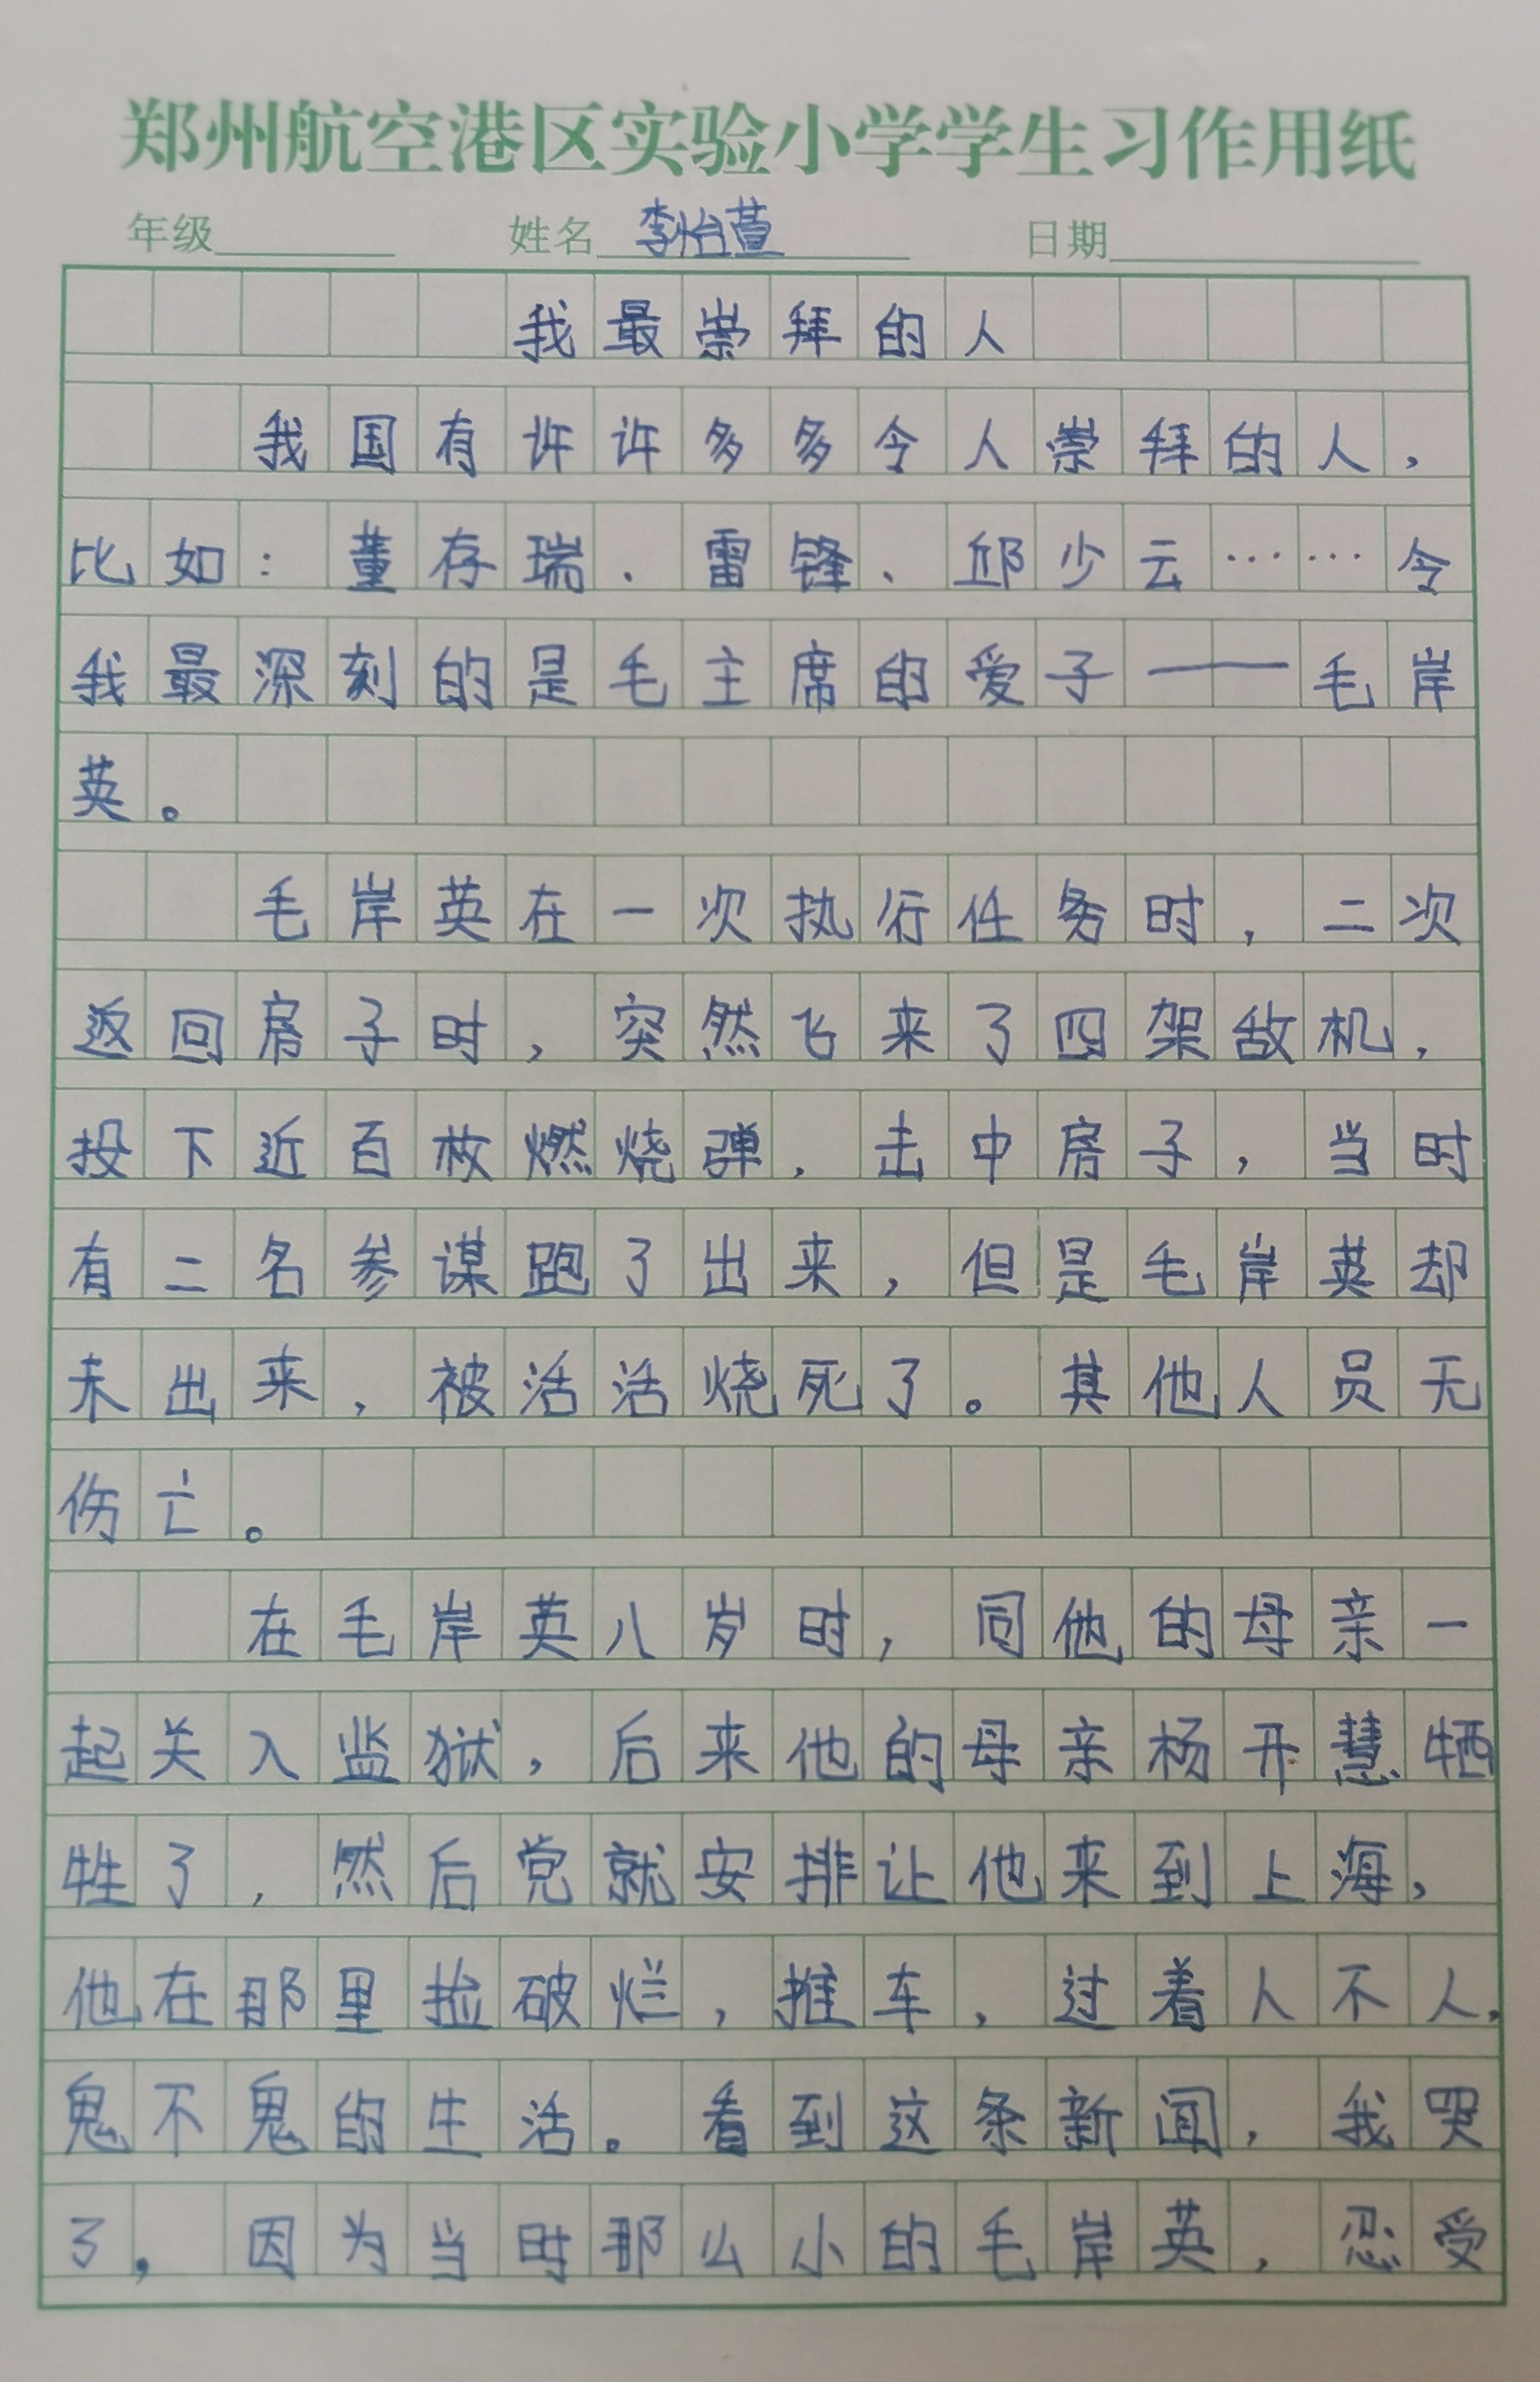 郑州航空港区实验小学学生习作用纸
年级 姓名 李怡萱 日期
我最崇拜的人
我国有许许多多令人崇拜的人，
比如：董存瑞、雷锋、邱少云……令
我最深刻的是毛主席的爱子——毛岸
英。
毛岸英在一次执行任务时，二次
返回房子时，突然飞来了四架敌机，
投下近百枚燃烧弹，击中房子，当时
有二名参谋跑了出来，但是毛岸英却
未出来，被活活烧死了。其他人员无
伤亡。
在毛岸英八岁时，同他的母亲一
起关入监狱，后来他的母亲杨开慧牺
牲了，然后党就安排让他来到上海，
他在那里捡破烂，推车，过着人不人，
鬼不鬼的生活。看到这条新闻，我哭
了，因为当时那么小的毛岸英，忍受